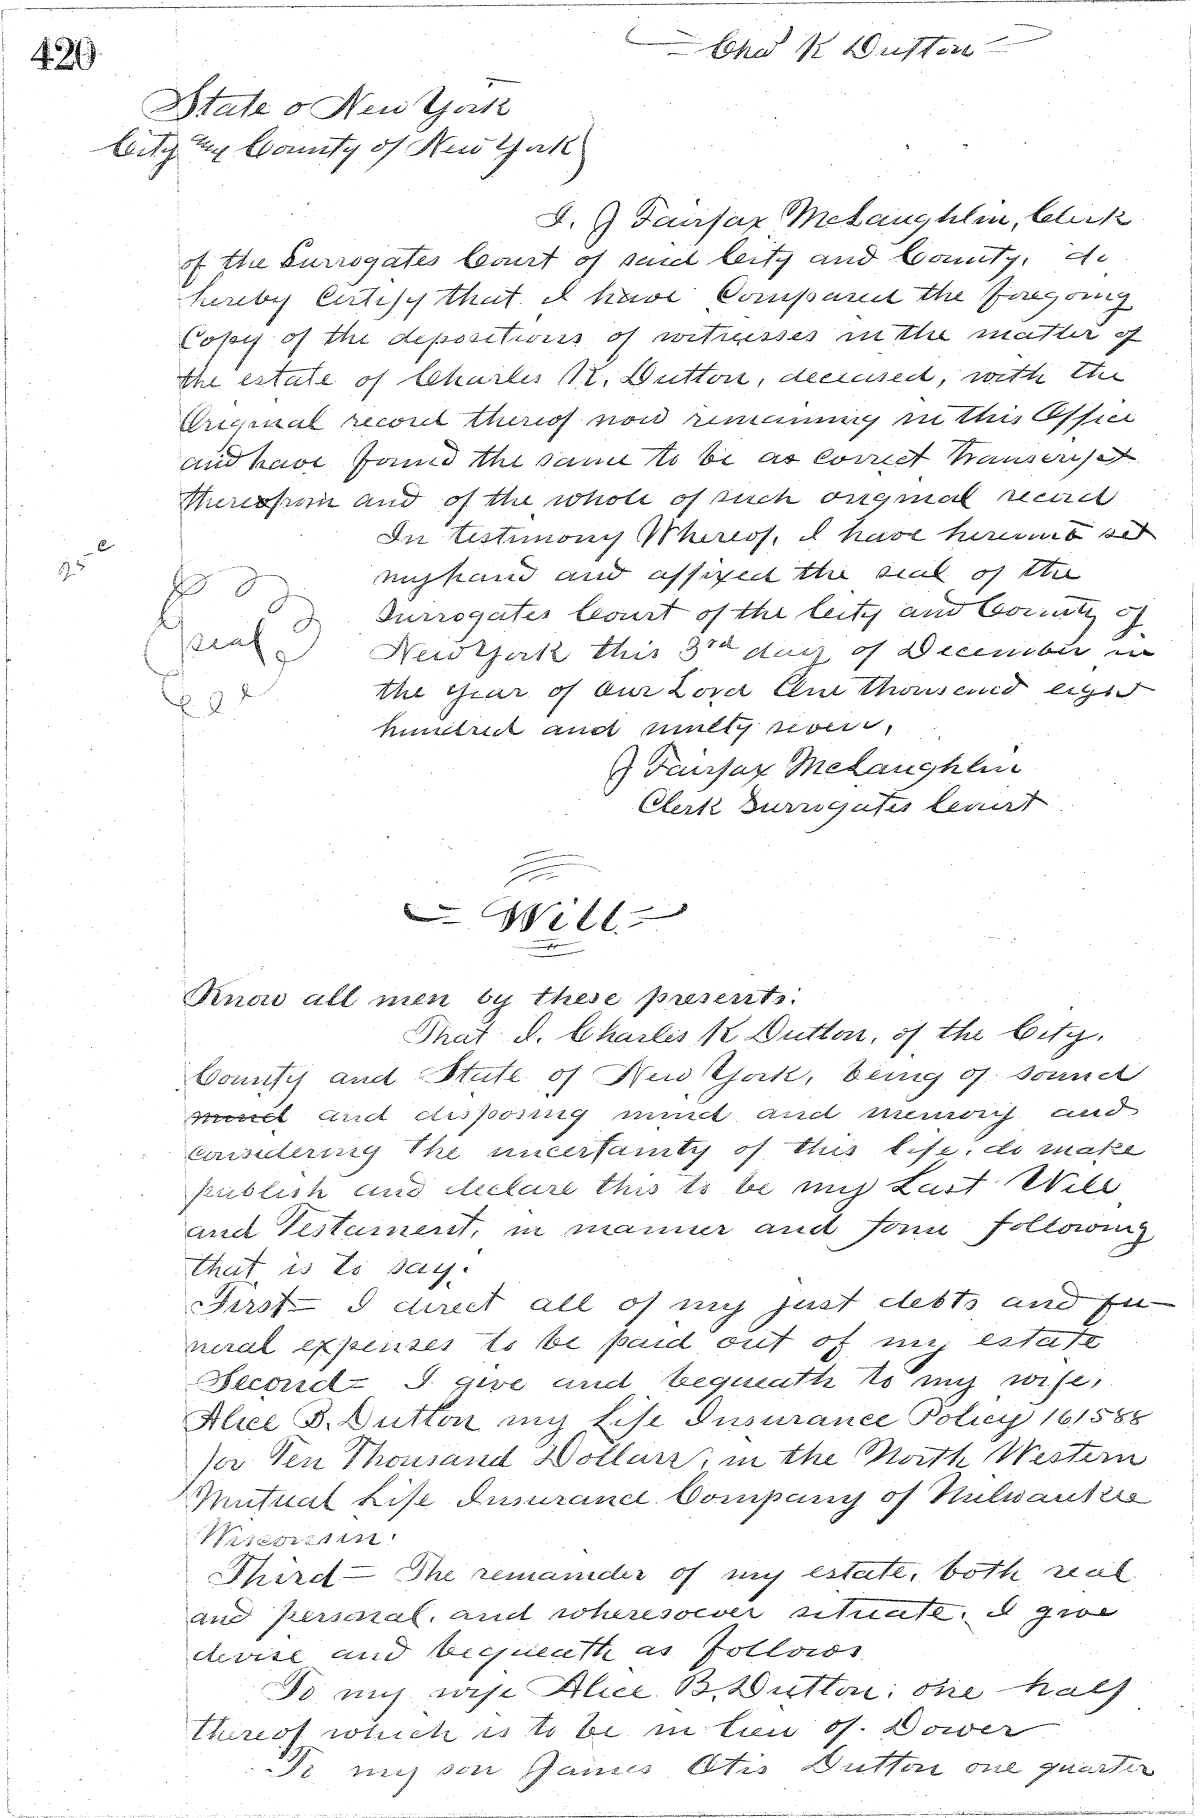 420
Chas K Dutton
State o New York
City and County of New York
I, J Fairfax McLaughlin, Clerk
of the Surrogates Court of said City and County, do
hereby Certify that I have Compared the foregoing
Copy of the depositions of witnesses in the matter of
the estate of Charles K. Dutton, deceased, with the
Original record thereof now remaining in this Office
and have found the same to be a correct Transcript
therefrom and of the whole of such original record
In testimony Whereof, I have hereunto set
my hand and affixed the seal of the
Surrogates Court of the City and County of
New York this 3rd day of December in
the year of our Lord One thousand eight
hundred and ninety seven,
J Fairfax McLaughlin
Clerk Surrogates Court
25 c
seal
Will
Know all men by these presents:
That I, Charles K Dutton, of the City,
County and State of New York, being of sound
mind and disposing mind and memory and
considering the uncertainty of this life, do make
publish and declare this to be my Last Will
and Testament, in manner and form following
that is to say:
First = I direct all of my just debts and fu-
neral expenses to be paid out of my estate
Second = I give and bequeath to my wife,
Alice B. Dutton my Life Insurance Policy 161588
for Ten Thousand Dollars, in the North Western
Mutual Life Insurance Company of Milwaukee
Wisconsin.
Third = The remainder of my estate, both real
and personal, and wheresoever situate, I give
devise and bequeath as follows
To my wife Alice B. Dutton, one half
thereof which is to be in lieu of Dower
To my son James Otis Dutton one quarter